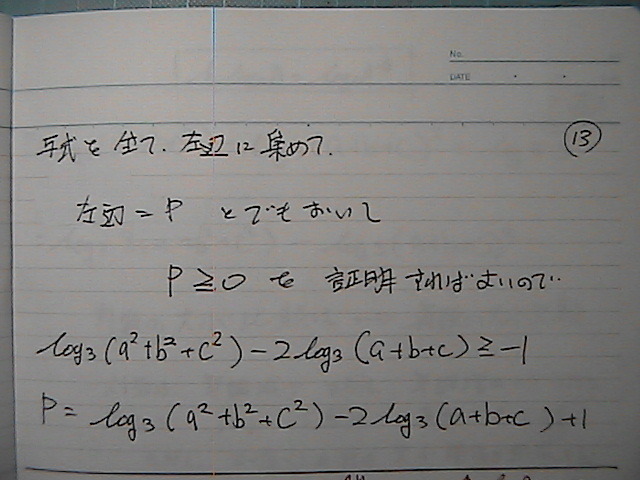 No.
DATE
与式を全て、左辺に集めて、 ⑬
左辺=P とでもおいて
P≧0 を 証明すればよいので‥
log₃(a²+b²+c²)-2log₃(a+b+c)≧-1
P=log₃(a²+b²+c²)-2log₃(a+b+c)+1